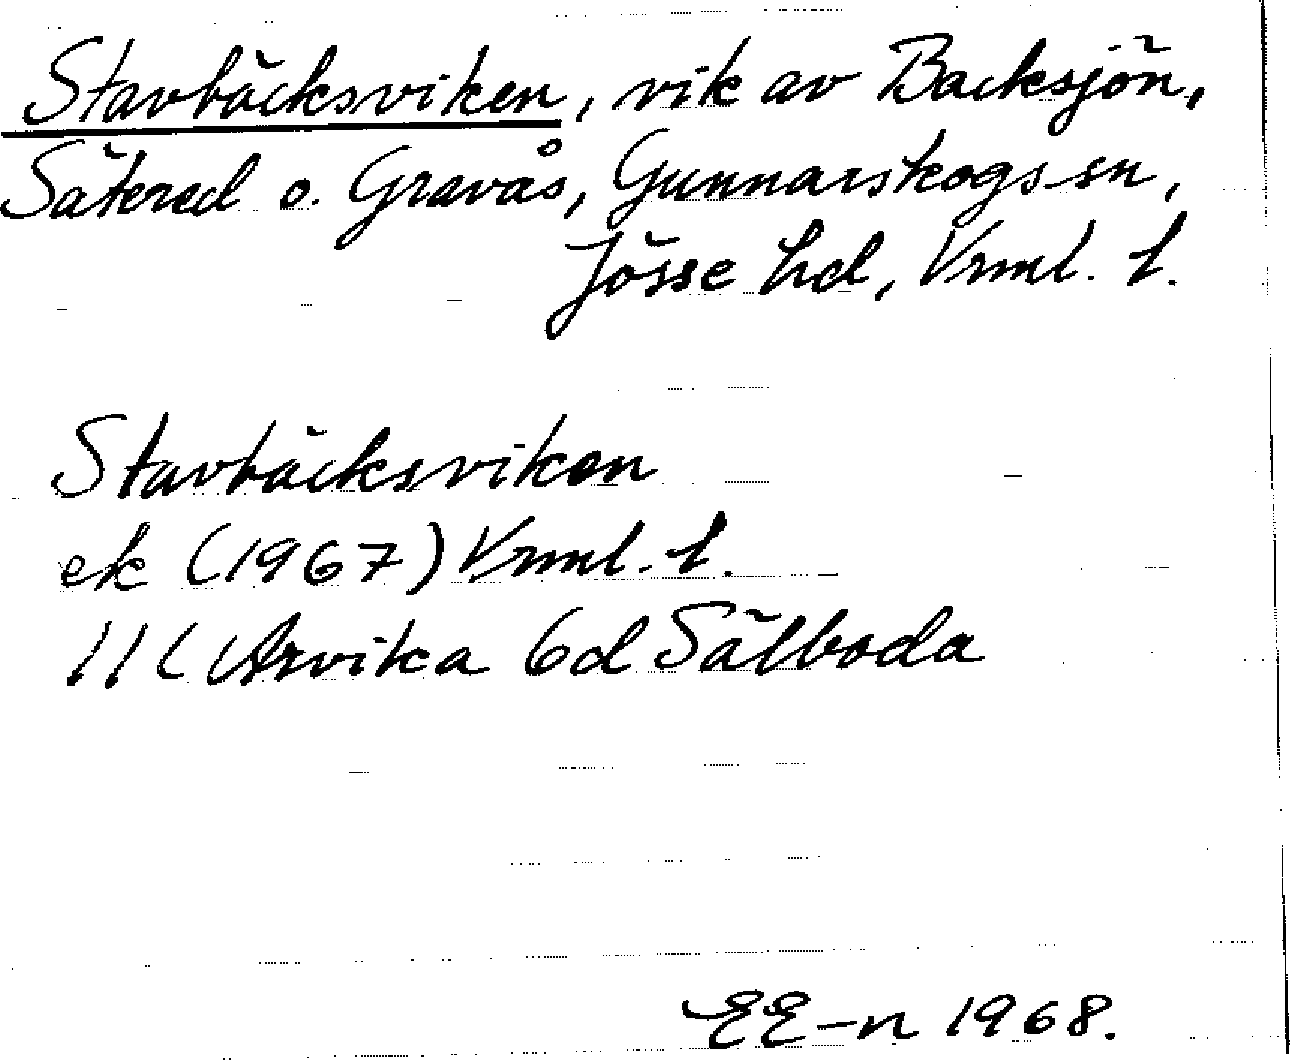 Stavbäcksviken, vik av Backsjön,
Sätered o. Gravås, Gunnarskogs sn,
Jösse hd, Vrml. l.
Stavbäcksviken
ek (1967) Vrml. l.
11C Arvika 6d Sälboda
EE-n 1968.